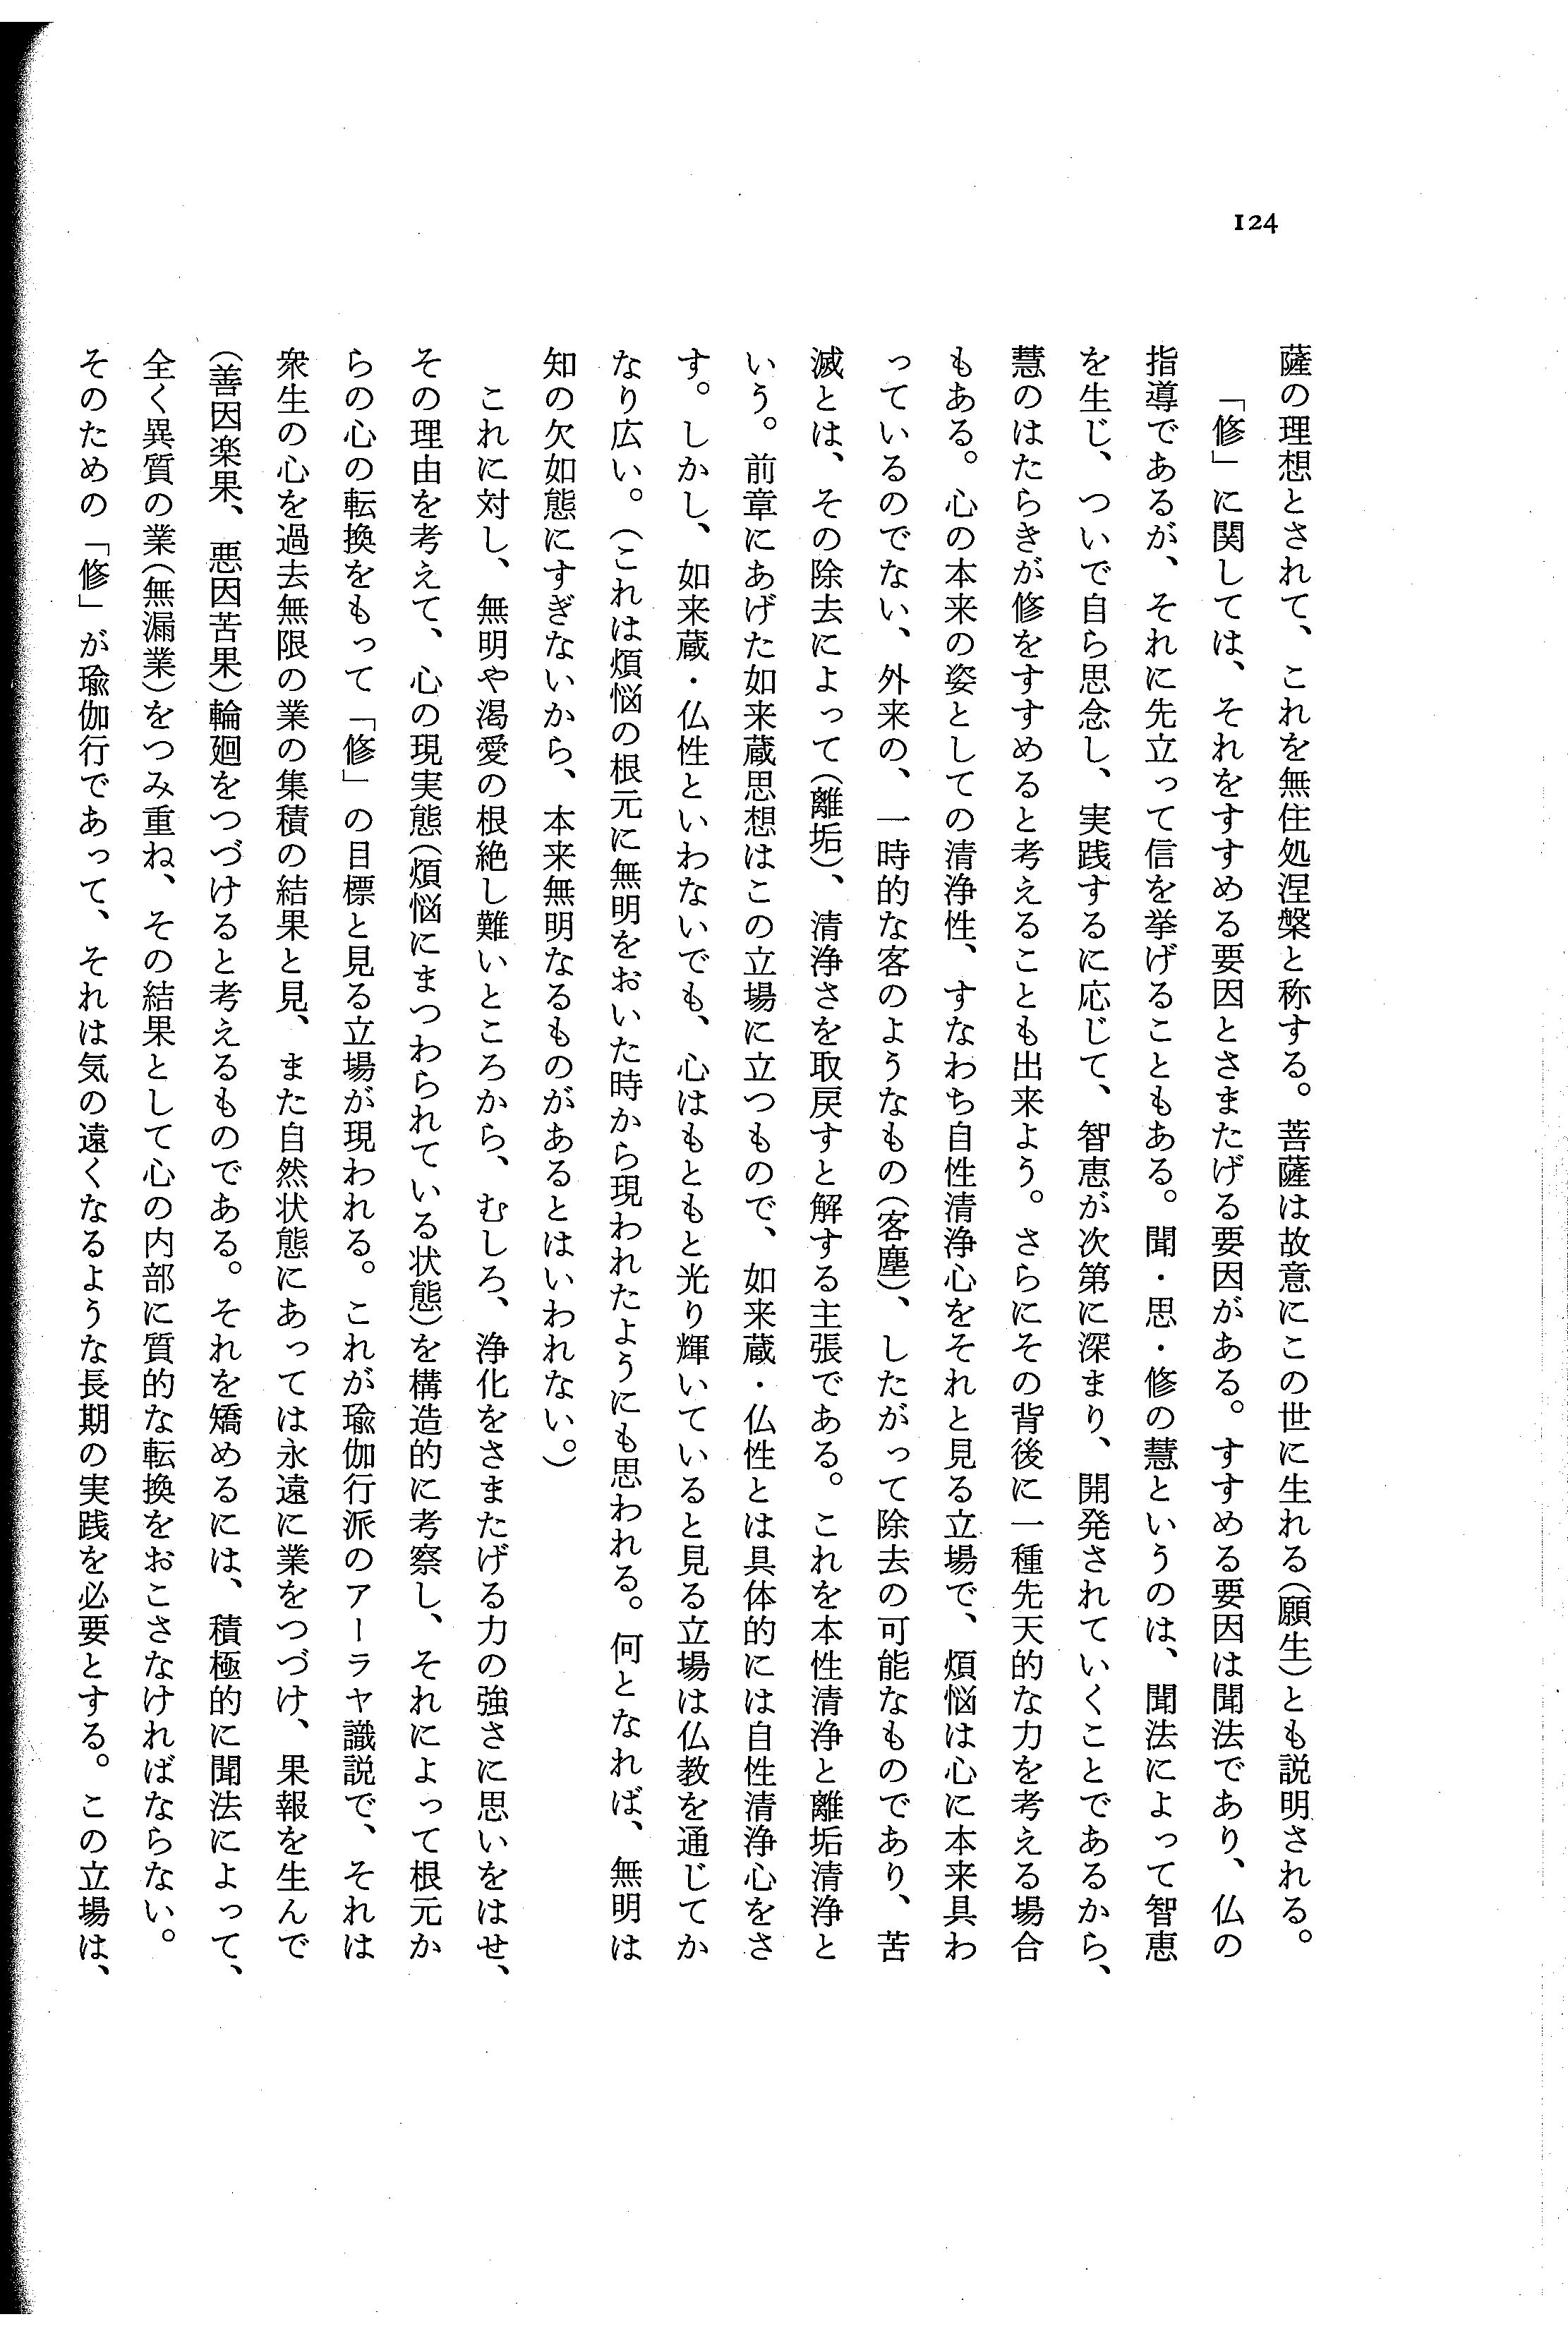 124
薩の理想とされて、これを無住処涅槃と称する。菩薩は故意にこの世に生れる(願生)とも説明される。
「修」に関しては、それをすすめる要因とさまたげる要因がある。すすめる要因は聞法であり、仏の
指導であるが、それに先立って信を挙げることもある。聞・思・修の慧というのは、聞法によって智恵
を生じ、ついで自ら思念し、実践するに応じて、智恵が次第に深まり、開発されていくことであるから、
慧のはたらきが修をすすめると考えることも出来よう。さらにその背後に一種先天的な力を考える場合
もある。心の本来の姿としての清浄性、すなわち自性清浄心をそれと見る立場で、煩悩は心に本来具わ
っているのでない、外来の、一時的な客のようなもの(客塵)、したがって除去の可能なものであり、苦
滅とは、その除去によって(離垢)、清浄さを取戻すと解する主張である。これを本性清浄と離垢清浄と
いう。前章にあげた如来蔵思想はこの立場に立つもので、如来蔵・仏性とは具体的には自性清浄心をさ
す。しかし、如来蔵・仏性といわないでも、心はもともと光り輝いていると見る立場は仏教を通じてか
なり広い。(これは煩悩の根元に無明をおいた時から現われたようにも思われる。何となれば、無明は
知の欠如態にすぎないから、本来無明なるものがあるとはいわれない。)
これに対し、無明や渇愛の根絶し難いところから、むしろ、浄化をさまたげる力の強さに思いをはせ、
その理由を考えて、心の現実態(煩悩にまつわられている状態)を構造的に考察し、それによって根元か
らの心の転換をもって「修」の目標と見る立場が現われる。これが瑜伽行派のアーラヤ識説で、それは
衆生の心を過去無限の業の集積の結果と見、また自然状態にあっては永遠に業をつづけ、果報を生んで
(善因楽果、悪因苦果)輪廻をつづけると考えるものである。それを矯めるには、積極的に聞法によって、
全く異質の業(無漏業)をつみ重ね、その結果として心の内部に質的な転換をおこさなければならない。
そのための「修」が瑜伽行であって、それは気の遠くなるような長期の実践を必要とする。この立場は、